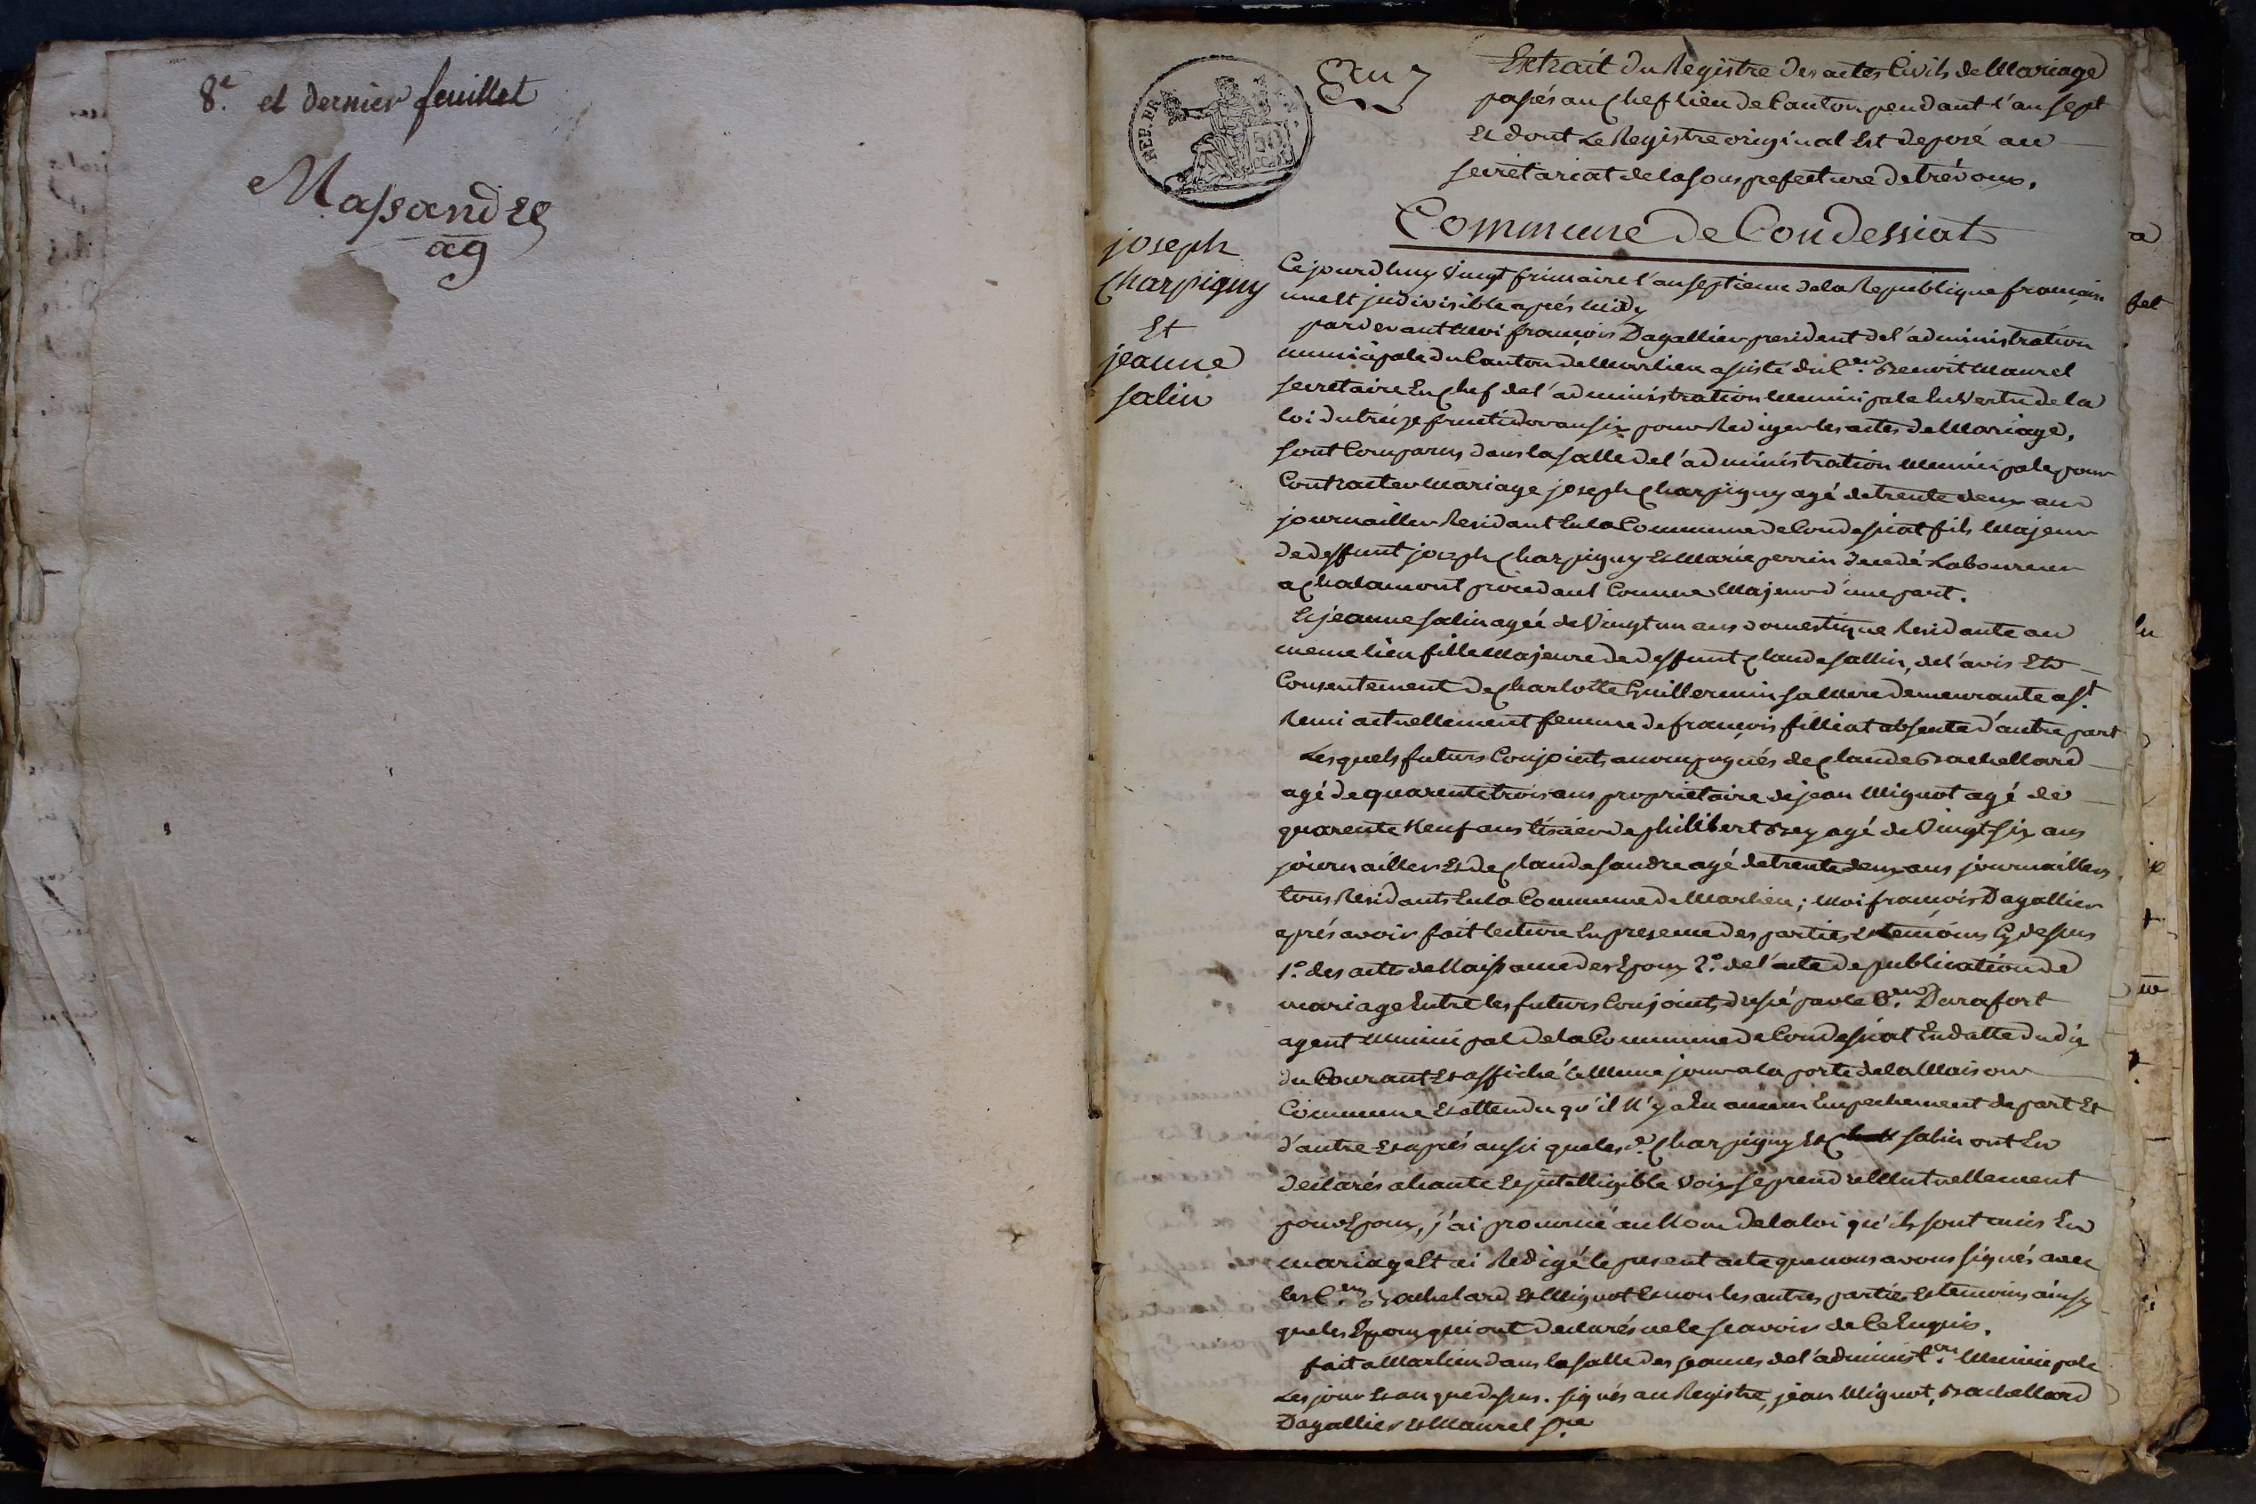 8.e et dernier feuillet
Massandre
ag
REP. FRA
an 7
Extrait du Registre des actes Civils de Mariage
passés au Chef lieu de Canton pendant l'an sept
Et dont Le Registre original Est deposé au
secretariat de la sous prefecture de trévoux.
Commune de Condessiat
joseph
Charpigny
Et
jeanne
salin
Cejourdhuy Vingt frimaire l'an septieme de la Republique francaise
une Et jndivisible après midy
pardevant Moi françois Dagallier president de l'administration
municipale du Canton de Marlieu assisté du C.en Benoit Maurel
secretaire En Chef de l'administration Municipale En Vertu de la
loi du treize fructidor an six pour Rediger les actes de Mariage,
sont Comparus dans la salle de l'administration Municipale pour
Contracter Mariage joseph Charpigny agé de trente deux ans
journaillier Residant En la Commune de Condessiat fils Majeur
de deffunt joseph Charpigny Et Marie perrin decedé Laboureur
a Chalamont procedant Comme Majeur d'une part.
Et jeanne salin agée de Vingt un ans domestique Residante au
meme lieu fille Majeure de deffunt Claude sallin, de l'avis Et
Consentement de Charlotte Guillermin sa Mere demeurante a s.t
Remi actuellement femme de françois filliat absente d'autre part
Lesquels futurs Conjoints accompagnés de Claude Brachellard
agé de quarente trois ans proprietaire de jean Mignot agé de
quarente Neuf ans tisier de philibert Brey agé de Vingt six ans
journaillier Et de Claude sandre agé de trente deux ans journaillier
tous Residants En la Commune de Marlieu ; Moi françois Dagallier
après avoir fait lecture En presence des parties Et temoins Cy dessus
1.o des actes de Naissance des Epoux 2.o de l'acte de publication de
mariage Entre les futurs Conjoints dressé par le C.en Durafort
agent Municipal de la Commune de Condessiat En datte du dix
du Courant Et affiché le Meme jour a la porte de la Maison
Commune Et attendu qu'il N'y a Eu aucun Empechement de part Et
d'autre Et après aussi que les d. Charpigny Et salin ont Eu
declarés a haute Et jntelligible Voix se prendre Mutuellement
pour Epoux, j'ai prononcé au Nom de la loi qu'ils sont unis En
mariage Et ai Redigé le present acte que nous avons signés avec
les C.en Brachelard Et Mignot Et non les autres parties Et temoins ainsy
que les Epoux qui ont declarés ne le sçavoir de Ce Enquis.
fait a Marlieu dans la salle des seances de l'administ.on Municipale
Les jour Et an que dessus. signés au Registre, jean Mignot, Brachellard
Dagallier Et Maurel S.re